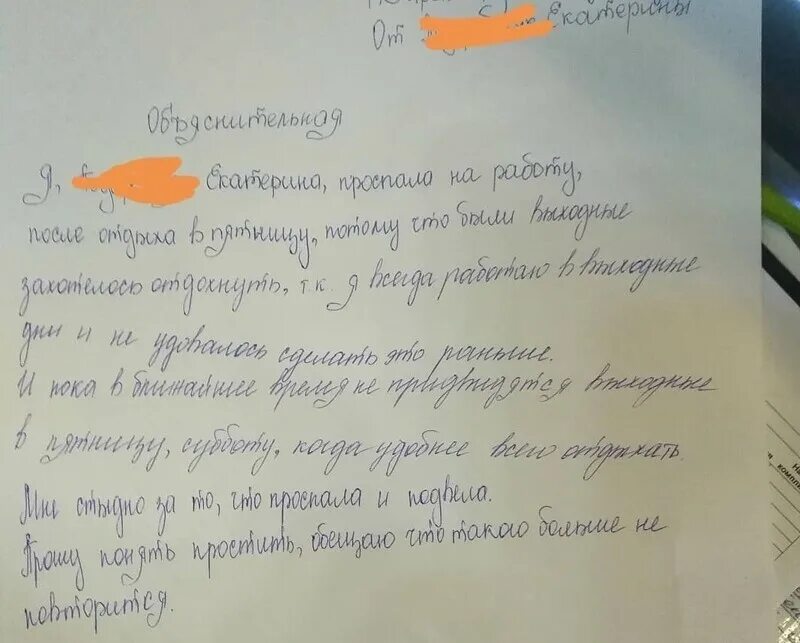 От Екатерины
Объяснительная
Я, Екатерина, проспала на работу,
после отдыха в пятницу, потому что были выходные
захотелось отдохнуть, т.к. я всегда работаю в выходные
дни и не удовалось сделать это раньше.
И пока в ближайшее время не придвидятся выходные
в пятницу, субботу, когда удобнее всего отдыхать.
Мне стыдно за то, что проспала и подвела.
Прошу понять простить, обещаю что такого больше не
повторится.